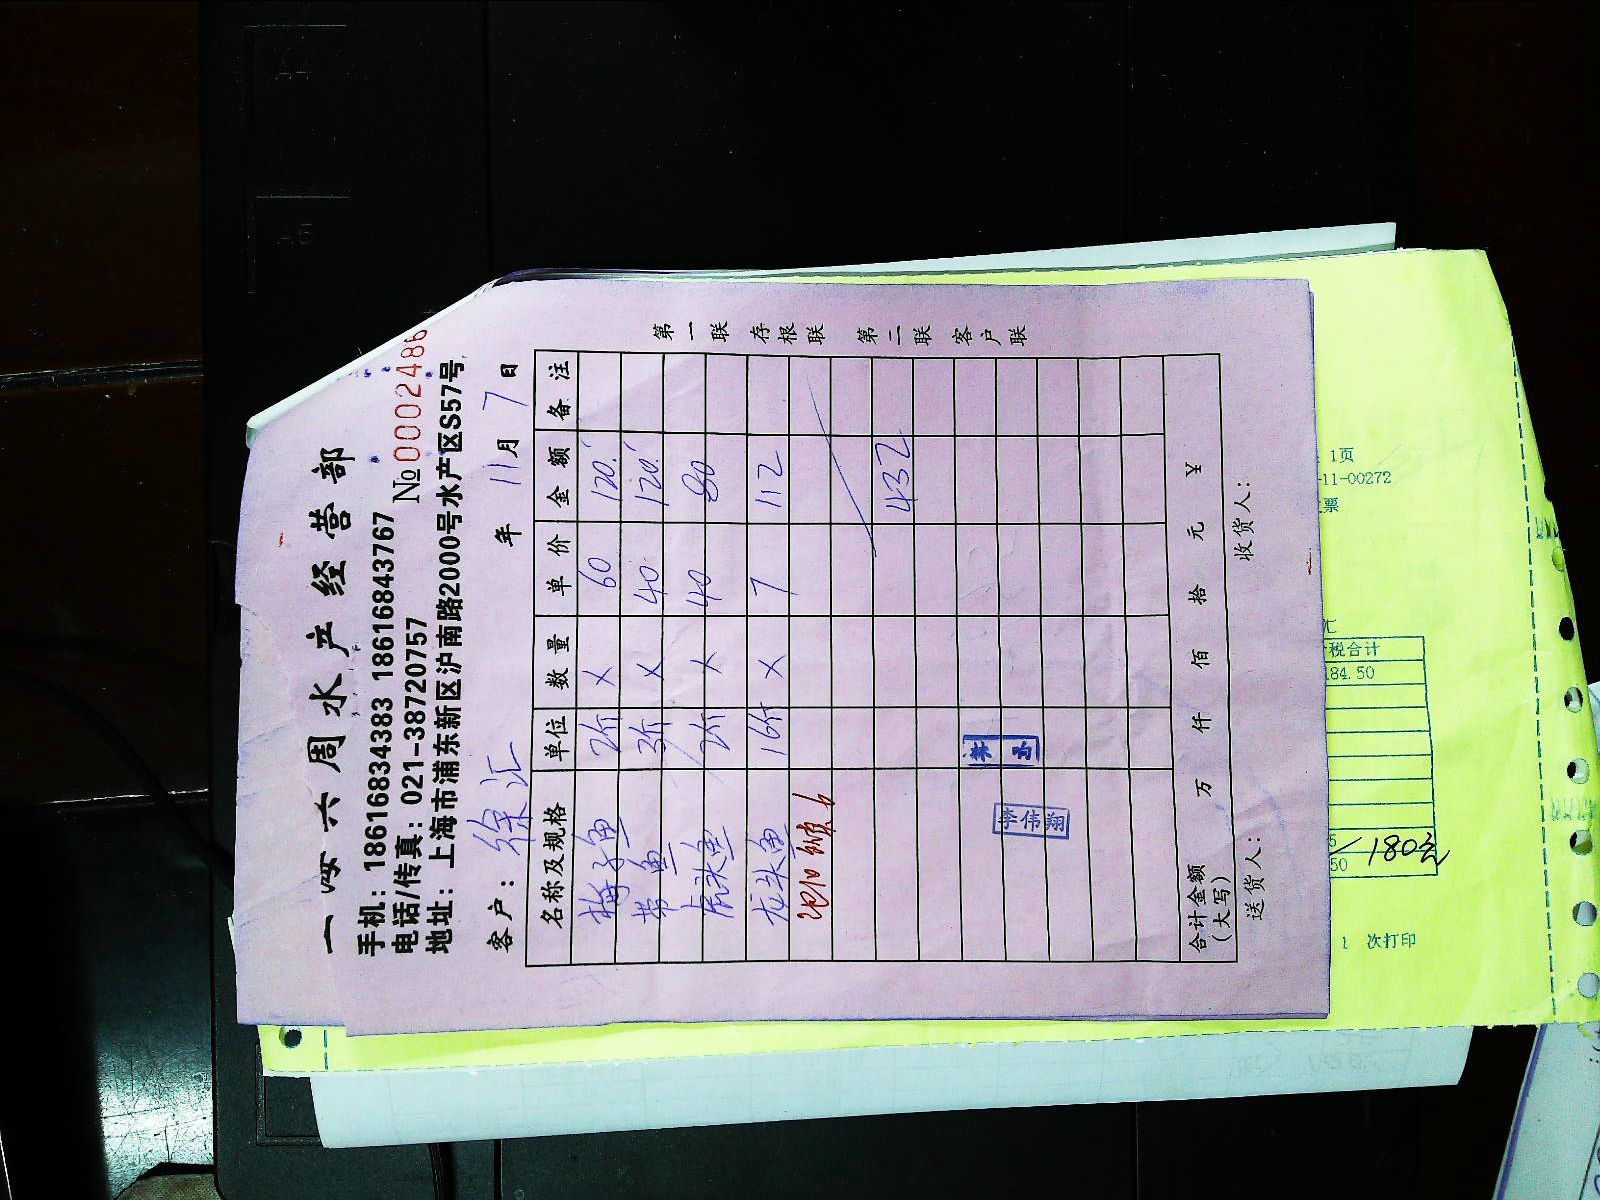 一四六周水产经营部
手机：18616834383 18616843767
电话/传真：021-38720757 №0002486
地址：上海市浦东新区沪南路2000号水产区S57号
客户：徐汇 年 11月 7日
名称及规格 单位 数量 单价 金额 备注
梅子鱼 2斤 × 60 120.
带鱼 3斤 × 40 120.
虎头鱼 2斤 × 40 80
龙头鱼 16斤 × 7 112
432
李伟翔
合计金额（大写） 万 仟 佰 拾 元 ¥
送货人： 收货人：
第一联 存根联 第二联 客户联
1页
11-00272
票
汇
税合计
184.50
50
180
1 次打印